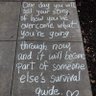 One day you will
tell your story
of how you've
overcome what
you're going
through now,
and it will become
part of someone
else's survival
guide.